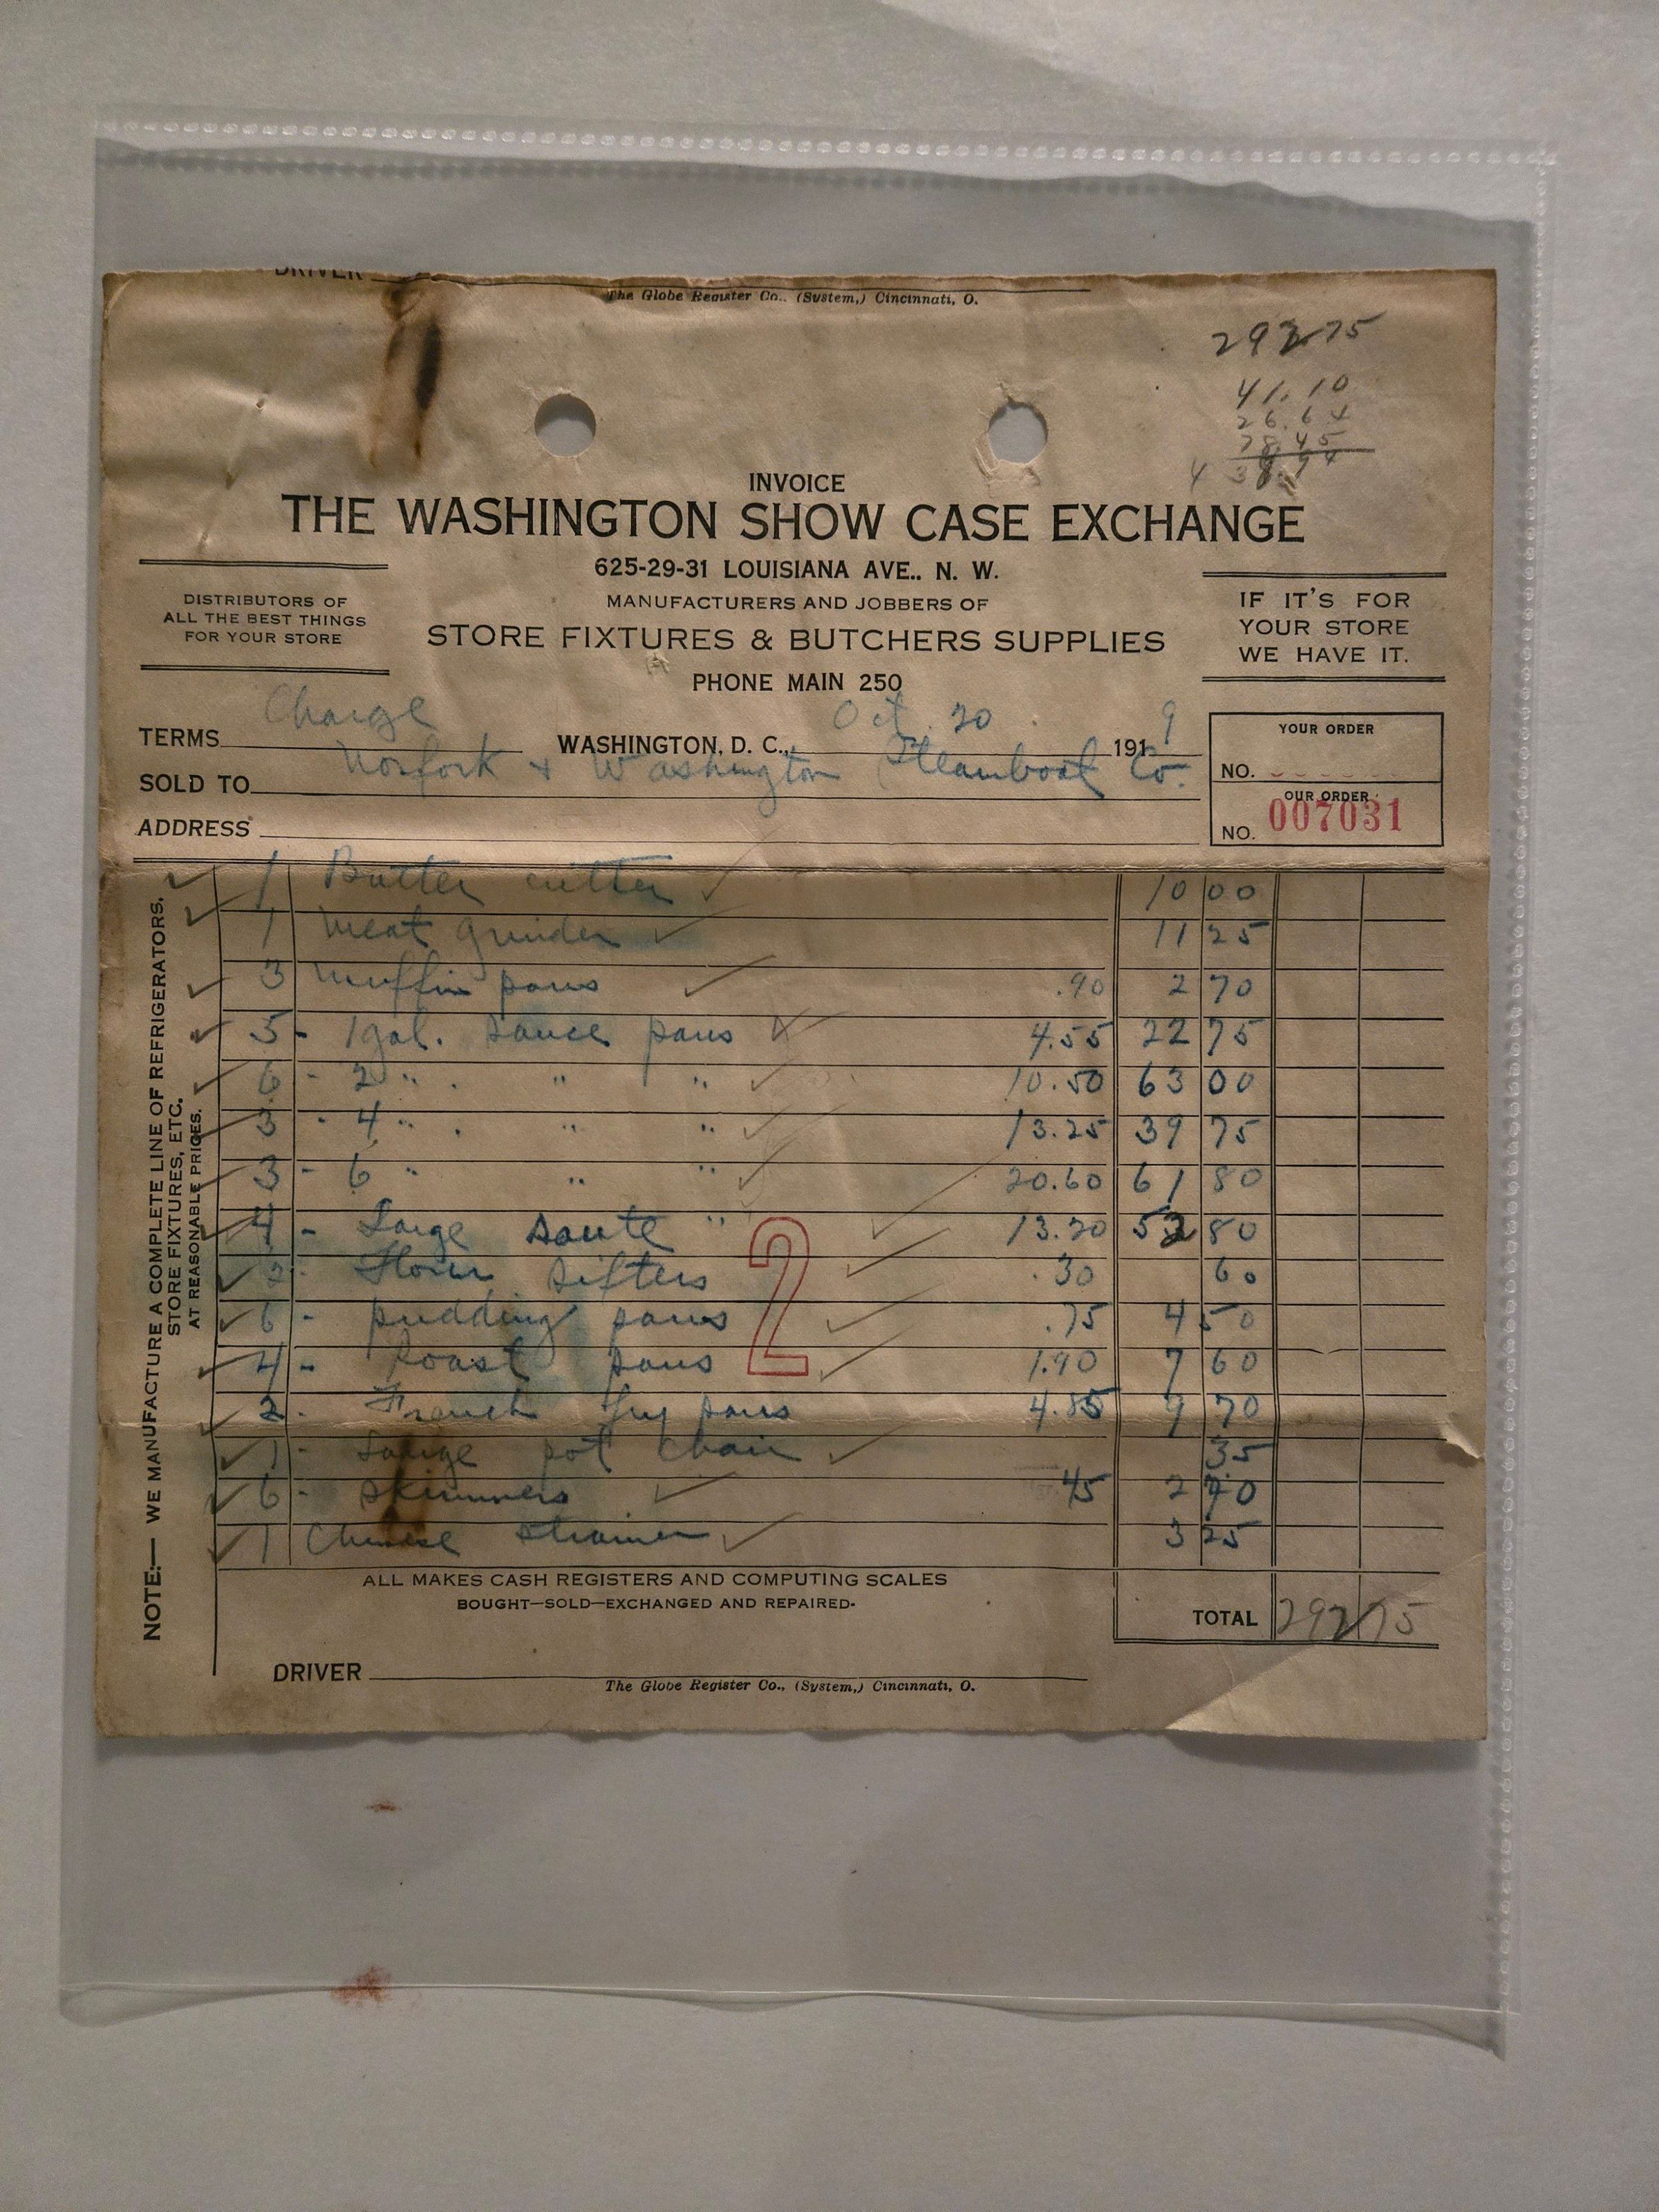 DRIVER
The Globe Register Co., (System,) Cincinnati, O.
292.75
41.10
26.64
78.45
INVOICE
THE WASHINGTON SHOW CASE EXCHANGE
625-29-31 LOUISIANA AVE.. N. W.
MANUFACTURERS AND JOBBERS OF
STORE FIXTURES & BUTCHERS SUPPLIES
PHONE MAIN 250
DISTRIBUTORS OF
ALL THE BEST THINGS
FOR YOUR STORE
IF IT'S FOR
YOUR STORE
WE HAVE IT.
TERMS Charge WASHINGTON, D. C., Oct. 20 1919
SOLD TO Norfork & Washington Steamboat Co.
ADDRESS
YOUR ORDER
NO.
OUR ORDER
NO. 007031
1 Butter cutter 10 00
1 Meat grinder 11 25
3 Muffin pans .90 2 70
5 - 1 gal. sauce pans 4.55 22 75
6 - 2 " " " 10.50 63 00
3 - 4 " " " 13.25 39 75
3 - 6 " " " 20.60 61 80
4 - Large saute " 13.20 52 80
2 - Flour sifters .30 60
6 - pudding pans .75 4 50
4 - Roast pans 1.90 7 60
2 - French fry pans 4.85 9 70
1 - Large pot chain 35
6 - skimmers 45 2 70
1 Chinese strainer 3 25
2
NOTE:— WE MANUFACTURE A COMPLETE LINE OF REFRIGERATORS,
STORE FIXTURES, ETC.
AT REASONABLE PRICES.
ALL MAKES CASH REGISTERS AND COMPUTING SCALES
BOUGHT—SOLD—EXCHANGED AND REPAIRED-
TOTAL 292 75
DRIVER
The Globe Register Co., (System,) Cincinnati, O.